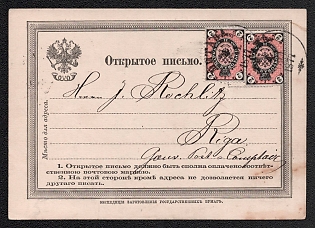 Открытое письмо.
Herrn J. Rochlitz
Riga
Мѣсто для адреса.
1. Открытое письмо должно быть сполна оплачено соотвѣт-
ственною почтовою маркою.
2. На этой сторонѣ кромѣ адреса не дозволяется ничего
другаго писать.
ЭКСПЕДИЦІЯ ЗАГОТОВЛЕНІЯ ГОСУДАРСТВЕННЫХЪ БУМАГЪ.